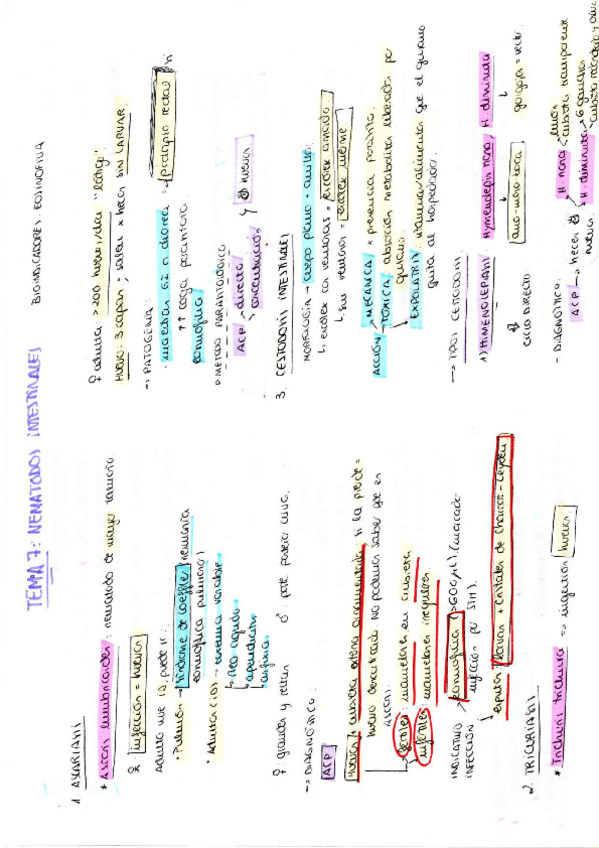 TEMA 7: NEMATODOS INTESTINALES
BIOINDICADORES: EOSINOFILIA
1. ASCARIASIS
* Ascaris lumbricoides: nematodo de mayor tamaño
infección = huevos
Adulto vive ID, puede ir:
· Pulmón → Síndrome de Loeffler (neumonía
eosinofílica pulmonar)
· Adultos (ID) → anemia variable
íleo agudo
apendicitis
♀ grandes y rectas ♂: parte posterior curva.
→ DIAGNÓSTICO
ACP
Huevos: cubierta externa ornamentada, si la pierde =
huevo decorticado. No podemos saber que es
Ascaris.
fértiles: mamelones en cubierta
infértiles: mamelones irregulares
INDICATIVO INFECCIÓN
eosinofilia (>600/µL) (marcador
infección por STH).
esputo: larvas + Cristales de Charcot-Leyden
2. TRICURIASIS
* Trichuris trichiura ⇒ ingestión huevos
♀ adulta: >200 huevos/día "látigo"
Huevo: 3 capas; salen x heces SIN LARVAR.
→ PATOGENIA:
· prolapso rectal
↑↑ carga parasitaria
eosinofilia
MÉTODO PARASITOLÓGICO
ACP directa
concentración
huevos
3. CESTODOS INTESTINALES
MORFOLOGÍA → cuerpo plano + anillos
↳ escólex con ventosas = escólex armado.
↳ Sin ventosas = escólex inerme
ACCIÓN
MECÁNICA x presencia parásito.
TÓXICA: absorción metabolitos liberados por
gusano.
EXPOLIATRIX: vitaminas/alimentos que el gusano
quita al hospedador.
→ TIPOS CESTODOS.
1) HIMENOLEPIASIS Hymenolepis nana, H. diminuta
ano-mano-boca
CICLO DIRECTO
- DIAGNÓSTICO.
ACP → heces
H. nana
cubierta transparente
H. diminuta
6 ganchos